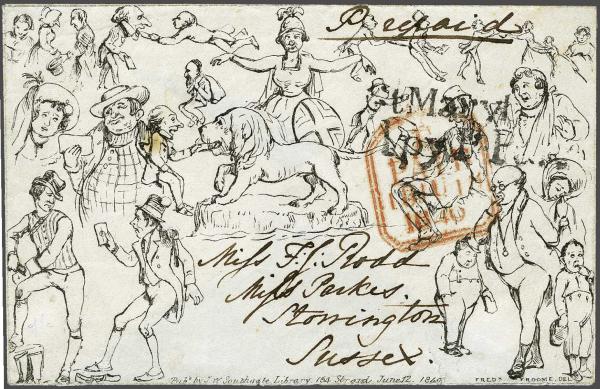 Prepaid
PAID
1840
Miss F. S. Rodd
Miss Parkes.
Storrington
Sussex.
Pubd. by J. W. Southgate Library 164 Strand, June 12, 1840
FREDK. FROOME, DEL.